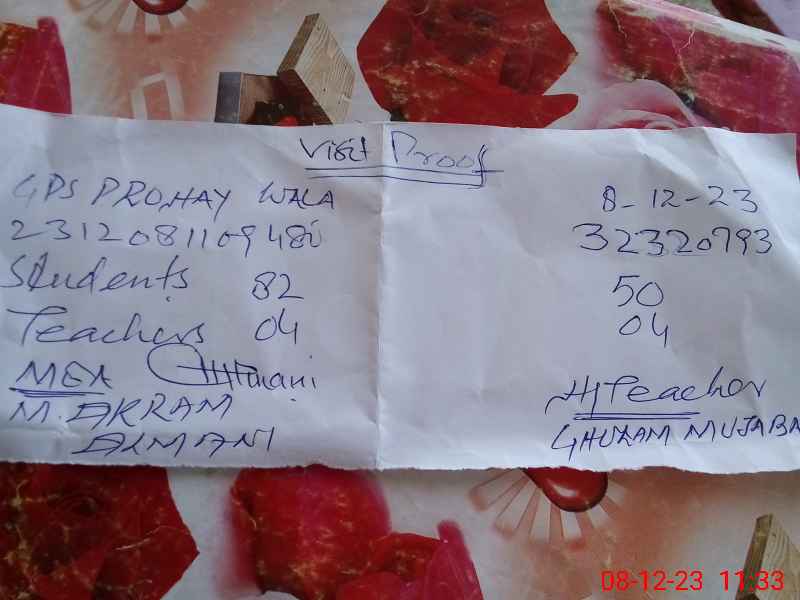 Visit Proof
GPS PROHAY WALA 8-12-23
32320793
Students 82 50
Teachers 04 04
MEA
M. AKRAM H/Teacher
ALMANI GHULAM MUJABA
08-12-23 11:33